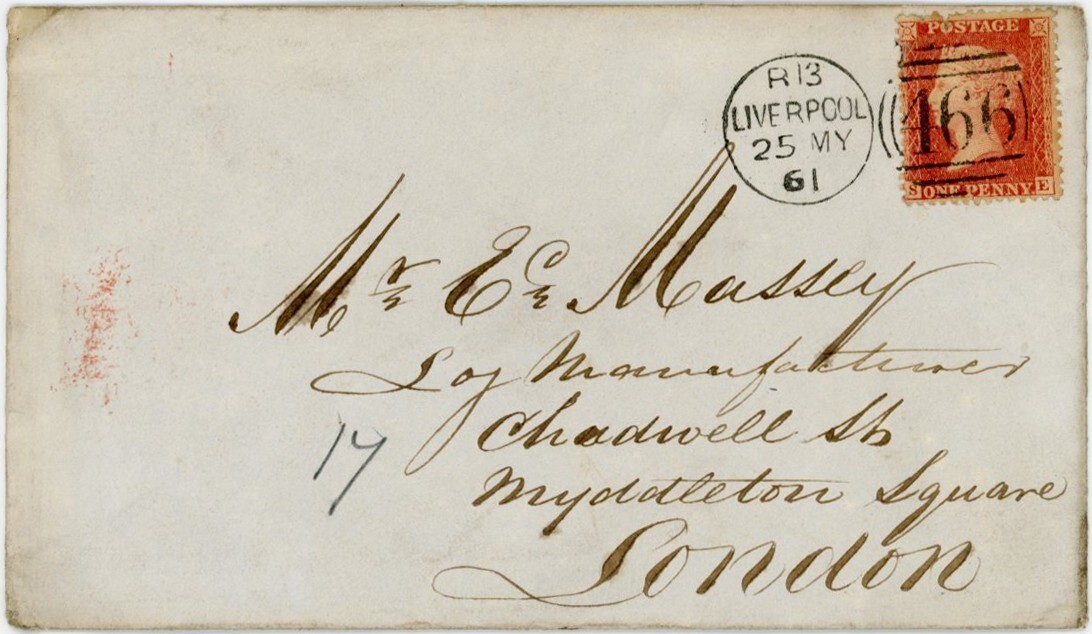 POSTAGE
R 13
LIVERPOOL
25 MY
61
466
S ONE PENNY E
Mr Ed. Massey
Log Manufacturer
17
Chadwell St
Myddleton Square
London